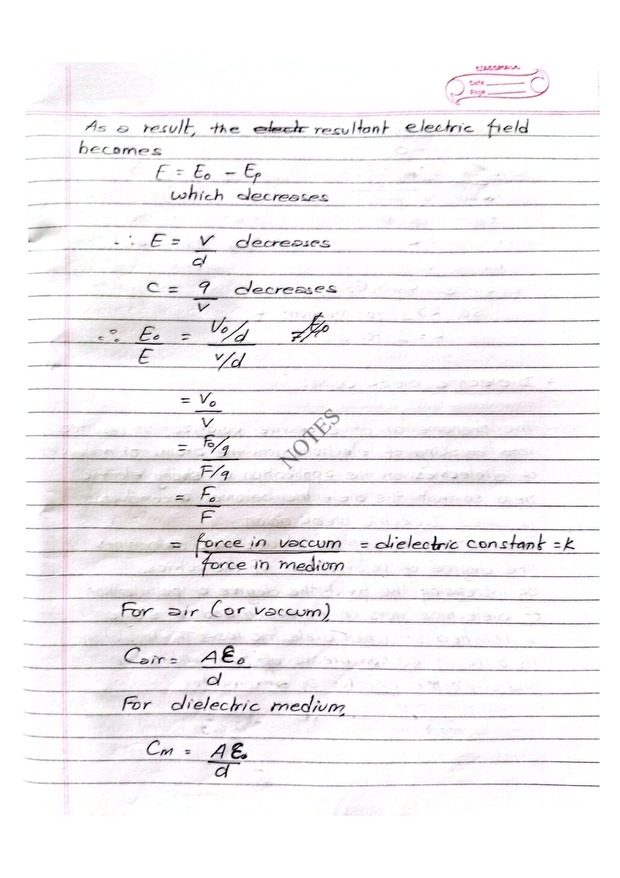 classmate
Date
Page
As a result, the elect resultant electric field
becomes
E = E₀ - Eₚ
which decreases
∴ E = V/d decreases
C = q/V decreases
∴ E₀/E = (V₀/d)/(V/d)
= V₀/V
= (F₀/q)/(F/q)
= F₀/F
= force in vaccum/force in medium = dielectric constant = K
For air (or vaccum),
Cair = Aε₀/d
For dielectric medium,
Cm = Aε₀/d
NOTES